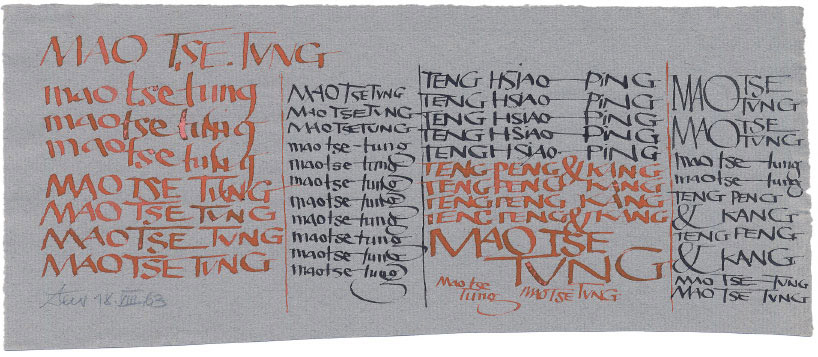 MAO TSE.TUNG
mao tse tung
mao tse tung
mao tse tung
MAO TSE TUNG
MAO TSE TUNG
MAO TSE TUNG
MAO TSE TUNG
18.VIII.63
MAO TSE TUNG
MAO TSE TUNG
MAO TSE TUNG
mao tse-tung
mao tse-tung
mao tse-tung
mao tse-tung
mao tse-tung
mao tse-tung
mao tse-tung
mao tse-tung
TENG HSIAO PING
TENG HSIAO PING
TENG HSIAO PING
TENG HSIAO PING
TENG HSIAO PING
TENG PENG & KANG
TENG PENG KANG
TENG PENG KANG
TENG PENG & KANG
MAO TSE
TUNG
Mao tse
tung
MAO TSE TUNG
MAO TSE
TUNG
MAO TSE
TUNG
mao tse-tung
mao tse-tung
TENG PENG
& KANG
TENG PENG
& KANG
MAO TSE-TUNG
MAO TSE TUNG